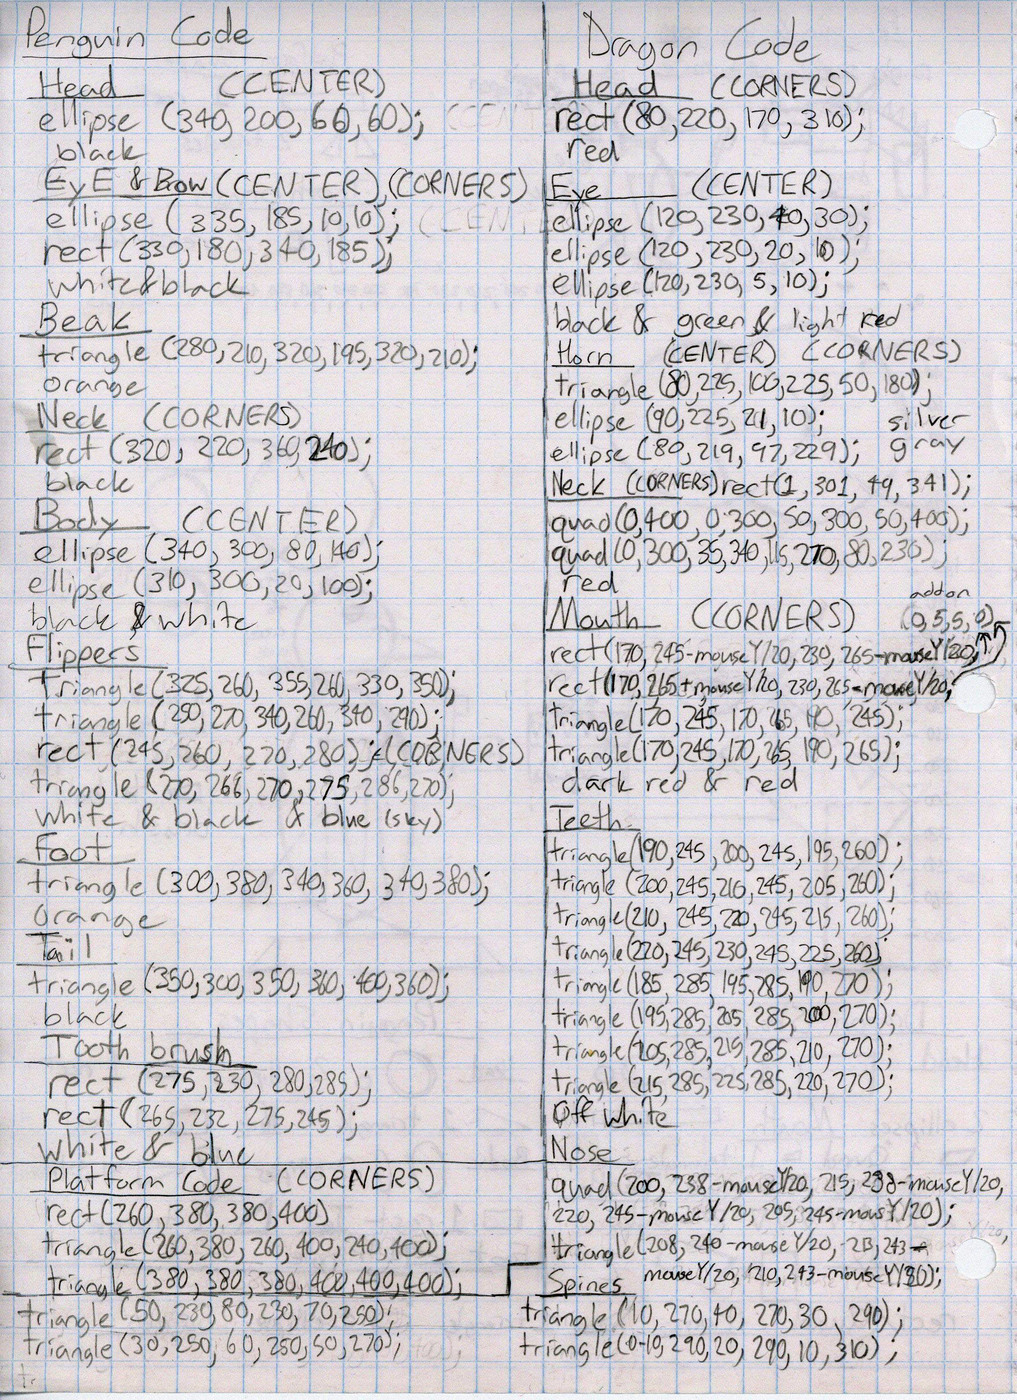 Penguin Code
Head (CENTER)
ellipse (340, 200, 60, 60);
black
EyE & Brow (CENTER) (CORNERS)
ellipse (335, 185, 10, 10);
rect (330, 180, 340, 185);
white & black
Beak
triangle (280, 210, 320, 195, 320, 210);
orange
Neck (CORNERS)
rect (320, 220, 360, 240);
black
Body (CENTER)
ellipse (340, 300, 80, 140);
ellipse (310, 300, 20, 100);
black & white
Flippers
triangle (325, 260, 355, 260, 330, 350);
triangle (250, 270, 340, 260, 340, 290);
rect (245, 260, 270, 280); (CORNERS)
triangle (270, 266, 270, 275, 286, 270);
white & black & blue (sky)
Foot
triangle (300, 380, 340, 360, 340, 380);
orange
Tail
triangle (350, 300, 350, 360, 400, 360);
black
Tooth brush
rect (275, 230, 280, 285);
rect (265, 232, 275, 245);
white & blue
Platform Code (CORNERS)
rect (260, 380, 380, 400)
triangle (260, 380, 260, 400, 240, 400);
triangle (380, 380, 380, 400, 400, 400);
Dragon Code
Head (CORNERS)
rect (80, 220, 170, 310);
red
Eye (CENTER)
ellipse (120, 230, 40, 30);
ellipse (120, 230, 20, 10);
ellipse (120, 230, 5, 10);
black & green & light red
Horn (CENTER) (CORNERS)
triangle (80, 225, 100, 225, 50, 180);
ellipse (90, 225, 21, 10); silver
ellipse (80, 219, 97, 229); gray
Neck (CORNERS) rect (1, 301, 49, 341);
quad (0, 400, 0, 300, 50, 300, 50, 400);
quad (0, 300, 35, 340, 115, 270, 80, 230);
red
add on
Mouth (CORNERS) (0, 5, 5, 0)
rect (170, 245-mouseY/20, 230, 265-mouseY/20,
rect (170, 265+mouseY/20, 230, 265-mouseY/20,
triangle (170, 245, 170, 265, 190, 245);
triangle (170, 245, 170, 265, 190, 265);
dark red & red
Teeth
triangle (190, 245, 200, 245, 195, 260);
triangle (200, 245, 210, 245, 205, 260);
triangle (210, 245, 220, 245, 215, 260);
triangle (220, 245, 230, 245, 225, 260);
triangle (185, 285, 195, 285, 190, 270);
triangle (195, 285, 205, 285, 200, 270);
triangle (205, 285, 215, 285, 210, 270);
triangle (215, 285, 225, 285, 220, 270);
Off white
Nose
quad (200, 238-mouseY/20, 215, 238-mouseY/20,
220, 245-mouseY/20, 205, 245-mousY/20);
triangle (208, 240-mouseY/20, 243-
mouseY/20, 210, 243-mouseY/20);
Spines
triangle (50, 230, 80, 230, 70, 250);
triangle (10, 270, 40, 270, 30, 290);
triangle (30, 250, 60, 250, 50, 270);
triangle (0-10, 290, 20, 290, 10, 310);